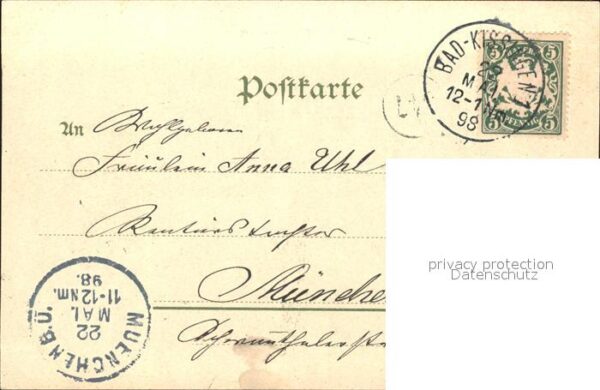 BAD-KISSINGEN
MAI
12-1 Nm
98
5 5
PFENNIG
5 5
Postkarte
An Wohlgeboren
Fräulein Anna Uhl
München
MUENCHEN B.Ü.
22
MAI.
11-12 Nm.
98.
privacy protection
Datenschutz